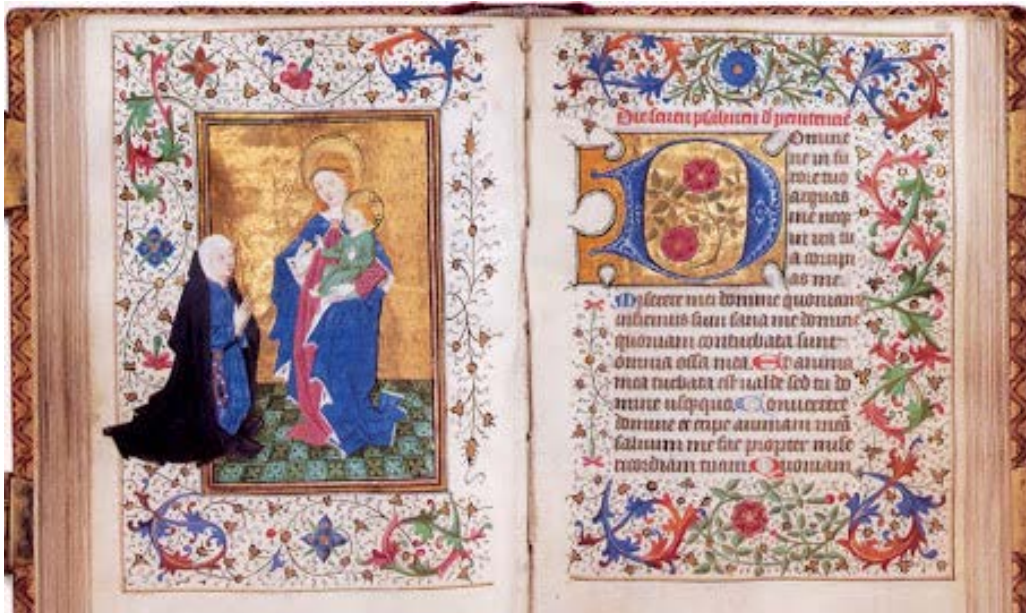 Die seven psalmen d penitencie
Domine
ne in fu
rore tuo
arguas
me neq
a corripi
as me.
Miserere mei domine quoniam
infirmus sum sana me domine
quoniam conturbata sunt
omnia ossa mea Et anima
mea turbata est valde sed tu do
mine usqzquo Convertere
domine et eripe animam meā
salvum me fac propter mise
ricordiam tuam Quoniam